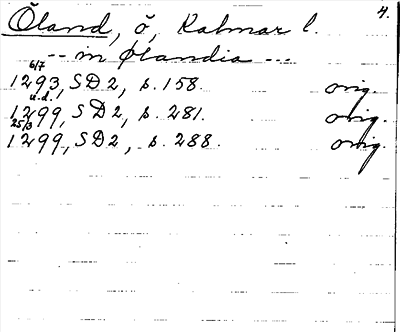 Öland, ö, Kalmar l. 4.
-- in Ølandia ---
6/7
1293, SD2, s. 158. orig.
u.d.
1299, SD2, s. 281. orig.
25/3
1299, SD2, s. 288. orig.